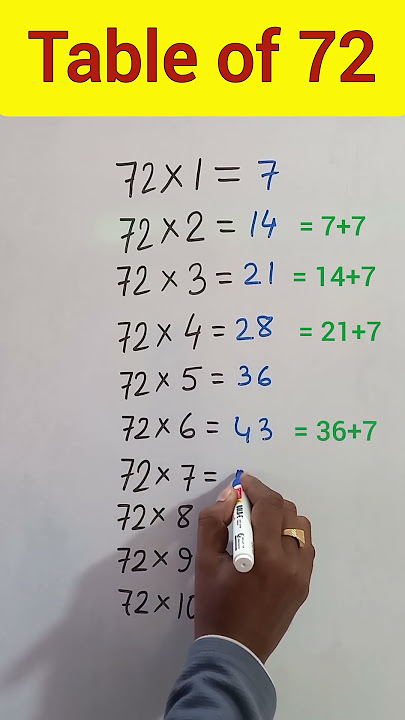 Table of 72
72 × 1 = 7
72 × 2 = 14 = 7+7
72 × 3 = 21 = 14+7
72 × 4 = 28 = 21+7
72 × 5 = 36
72 × 6 = 43 = 36+7
72 × 7 =
72 × 8
72 × 9
72 × 10